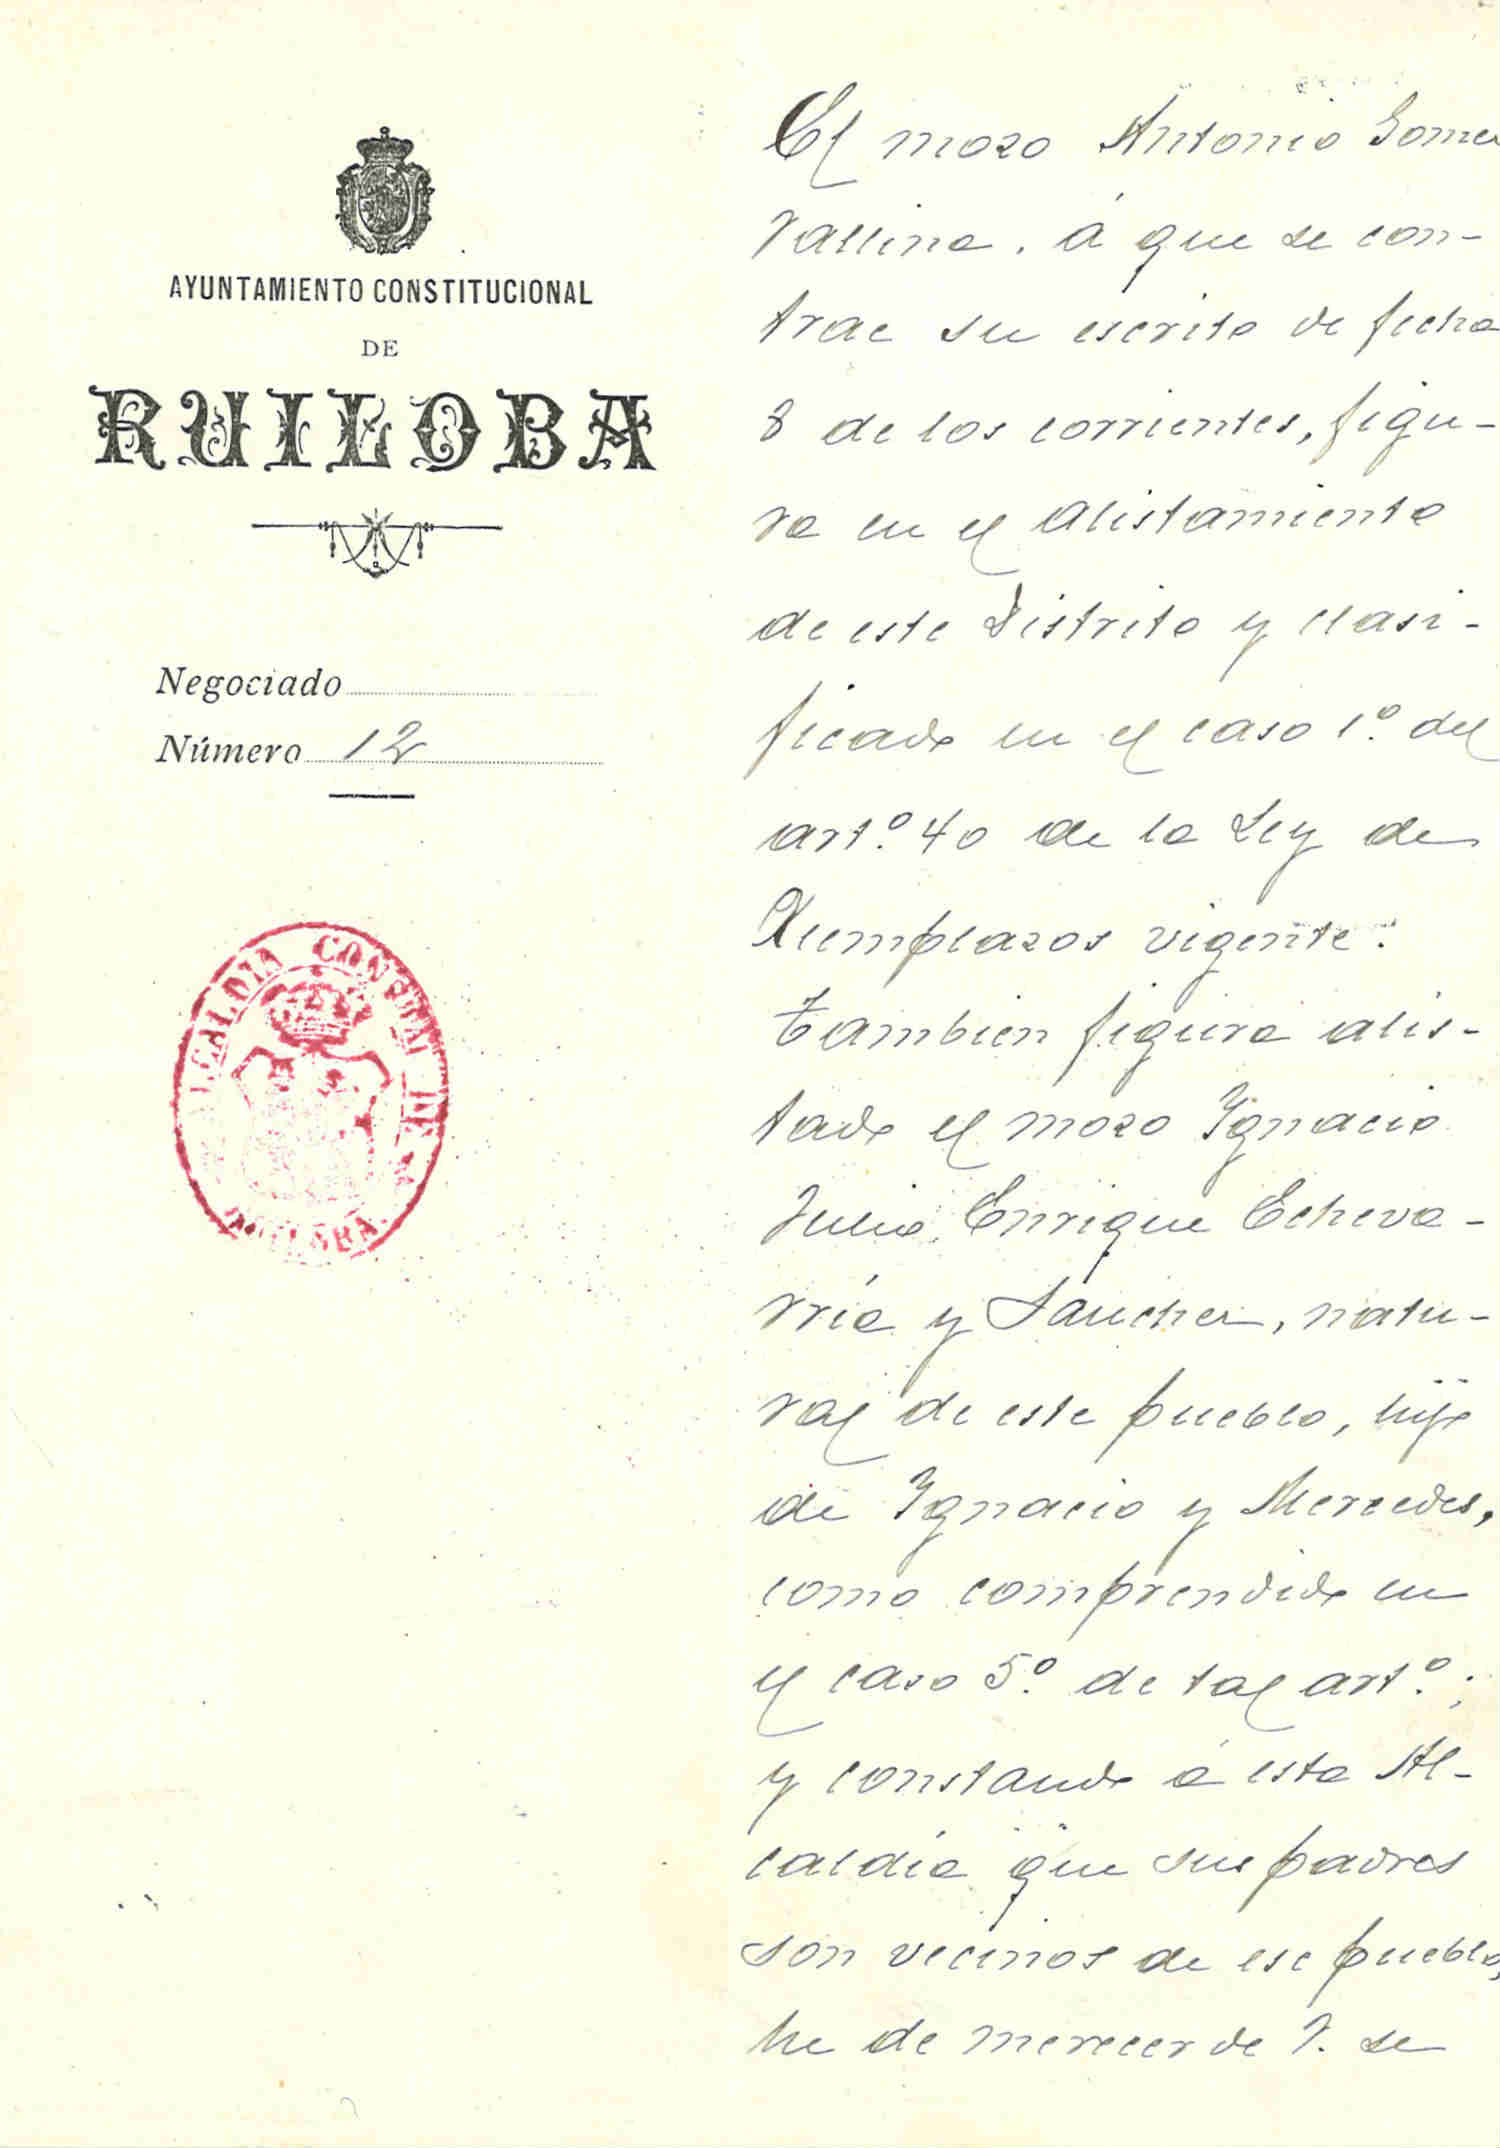 AYUNTAMIENTO CONSTITUCIONAL
DE
RUILOBA
Negociado
Número 12
ALCALDIA CONSTNAL DE
RUILOBA
El mozo Antonio Gomez
Vallina, á que se con-
trae su escrito de fecha
8 de los corrientes, figu-
ra en el alistamiento
de este Distrito y clasi-
ficado en el caso 1º. del
artº. 40 de la Ley de
Reemplazos vigente.
Tambien figura alis-
tado el mozo Ygnacio
Julio, Enrique Echeva-
rría y Sanchez, natu-
ral de este pueblo, hijo
de Ygnacio y Mercedes,
como comprendido en
el caso 5º. de tal artº.;
y constando á esta Al-
caldía que sus padres
son vecinos de ese pueblo,
he de merecer de V. se